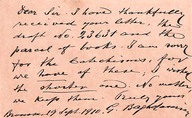 Dear Sir. I have thankfully
received your letter, the
draft No. 23631 and the
parcel of books. I am sorry
for the Catechisms, for
we have of these, I wrote
the shorter one. No matter
we keep them. Truly yours
19 Sept. 1910. G.